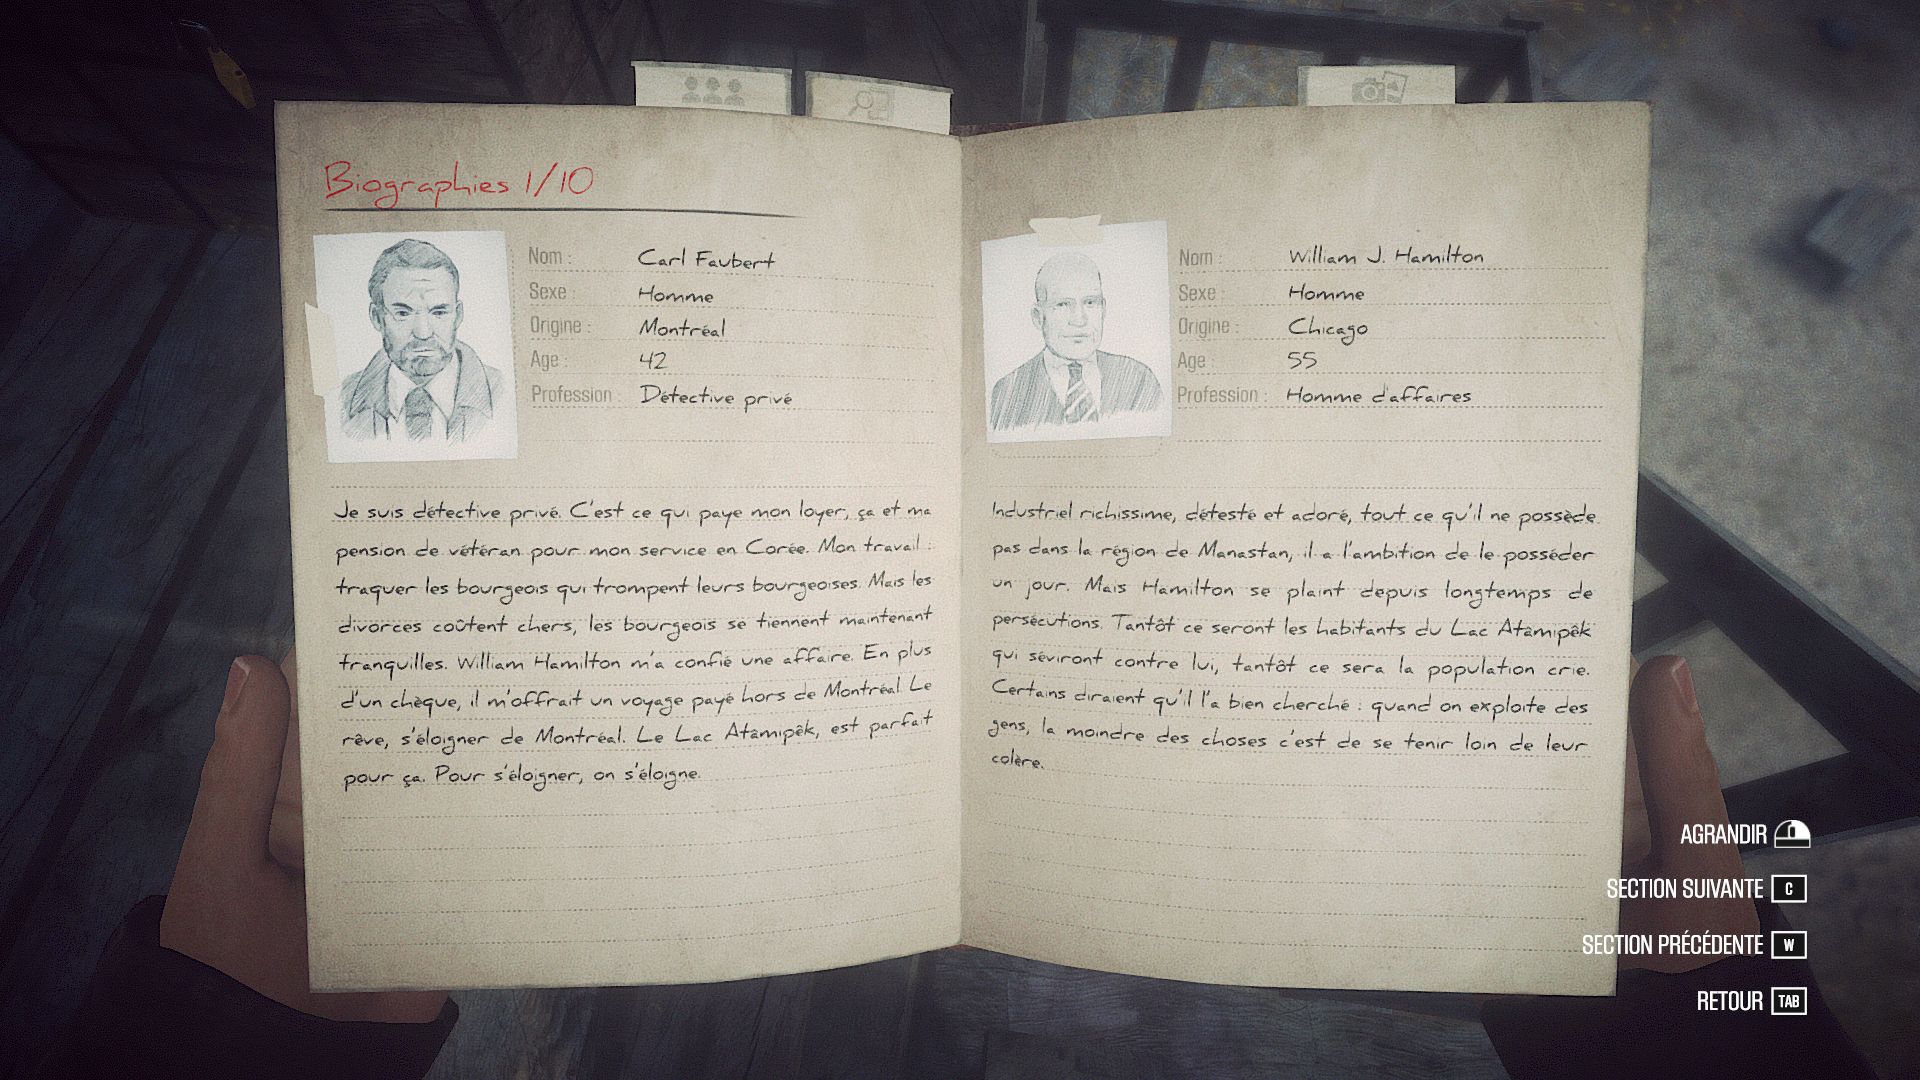 Biographies 1/10
Nom : Carl Faubert
Sexe : Homme
Origine : Montréal
Age : 42
Profession : Détective privé
Je suis détective privé. C'est ce qui paye mon loyer, ça et ma
pension de vétéran pour mon service en Corée. Mon travail :
traquer les bourgeois qui trompent leurs bourgeoises. Mais les
divorces coûtent chers, les bourgeois se tiennent maintenant
tranquilles. William Hamilton m'a confié une affaire. En plus
d'un chèque, il m'offrait un voyage payé hors de Montréal. Le
rêve, s'éloigner de Montréal. Le Lac Atâmipêk, est parfait
pour ça. Pour s'éloigner, on s'éloigne.
Nom : William J. Hamilton
Sexe : Homme
Origine : Chicago
Age : 55
Profession : Homme d'affaires
Industriel richissime, détesté et adoré, tout ce qu'il ne possède
pas dans la région de Manastan, il a l'ambition de le posséder
un jour. Mais Hamilton se plaint depuis longtemps de
persécutions. Tantôt ce seront les habitants du Lac Atâmipêk
qui séviront contre lui, tantôt ce sera la population crie.
Certains diraient qu'il l'a bien cherché : quand on exploite des
gens, la moindre des choses c'est de se tenir loin de leur
colère.
AGRANDIR
SECTION SUIVANTE C
SECTION PRÉCÉDENTE W
RETOUR TAB